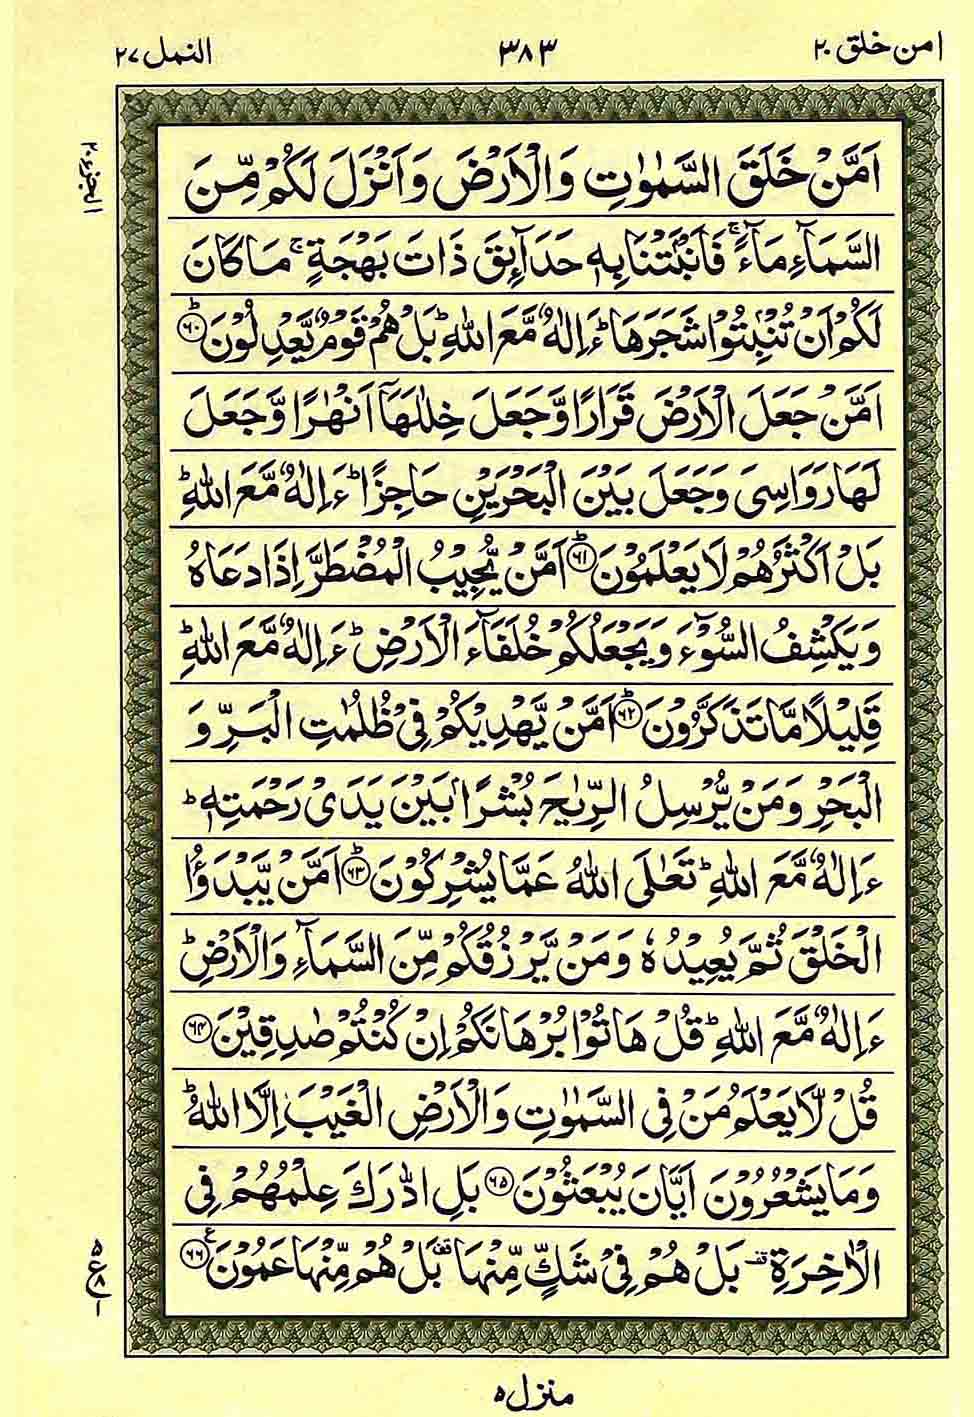 امن خلق ٢٠
٣٨٣
النمل ٢٧
الجزء ٢٠
اَمَّنْ خَلَقَ السَّمٰوٰتِ وَالْاَرْضَ وَاَنْزَلَ لَكُمْ مِّنَ
السَّمَآءِ مَآءً ۚ فَاَنْۢبَتْنَا بِهٖ حَدَآىِٕقَ ذَاتَ بَهْجَةٍ ۚ مَا كَانَ
لَكُمْ اَنْ تُنْۢبِتُوْا شَجَرَهَا ؕ ءَاِلٰهٌ مَّعَ اللّٰهِ ؕ بَلْ هُمْ قَوْمٌ یَّعْدِلُوْنَ ؕ۝۶۰
اَمَّنْ جَعَلَ الْاَرْضَ قَرَارًا وَّجَعَلَ خِلٰلَهَاۤ اَنْهٰرًا وَّجَعَلَ
لَهَا رَوَاسِیَ وَجَعَلَ بَیْنَ الْبَحْرَیْنِ حَاجِزًا ؕ ءَاِلٰهٌ مَّعَ اللّٰهِ ؕ
بَلْ اَكْثَرُهُمْ لَا یَعْلَمُوْنَ ؕ۝۶۱ اَمَّنْ یُّجِیْبُ الْمُضْطَرَّ اِذَا دَعَاهُ
وَیَكْشِفُ السُّوْٓءَ وَیَجْعَلُكُمْ خُلَفَآءَ الْاَرْضِ ؕ ءَاِلٰهٌ مَّعَ اللّٰهِ ؕ
قَلِیْلًا مَّا تَذَكَّرُوْنَ ؕ۝۶۲ اَمَّنْ یَّهْدِیْكُمْ فِیْ ظُلُمٰتِ الْبَرِّ وَ
الْبَحْرِ وَمَنْ یُّرْسِلُ الرِّیٰحَ بُشْرًۢا بَیْنَ یَدَیْ رَحْمَتِهٖ ؕ
ءَاِلٰهٌ مَّعَ اللّٰهِ ؕ تَعٰلَی اللّٰهُ عَمَّا یُشْرِكُوْنَ ؕ۝۶۳ اَمَّنْ یَّبْدَؤُا
الْخَلْقَ ثُمَّ یُعِیْدُهٗ وَمَنْ یَّرْزُقُكُمْ مِّنَ السَّمَآءِ وَالْاَرْضِ ؕ
ءَاِلٰهٌ مَّعَ اللّٰهِ ؕ قُلْ هَاتُوْا بُرْهَانَكُمْ اِنْ كُنْتُمْ صٰدِقِیْنَ ۝۶۴
قُلْ لَّا یَعْلَمُ مَنْ فِی السَّمٰوٰتِ وَالْاَرْضِ الْغَیْبَ اِلَّا اللّٰهُ ؕ
وَمَا یَشْعُرُوْنَ اَیَّانَ یُبْعَثُوْنَ ۝۶۵ بَلِ ادّٰرَكَ عِلْمُهُمْ فِی
الْاٰخِرَةِ ۫ بَلْ هُمْ فِیْ شَكٍّ مِّنْهَا ۫ بَلْ هُمْ مِّنْهَا عَمُوْنَ ۠۝۶۶
منزل ۵